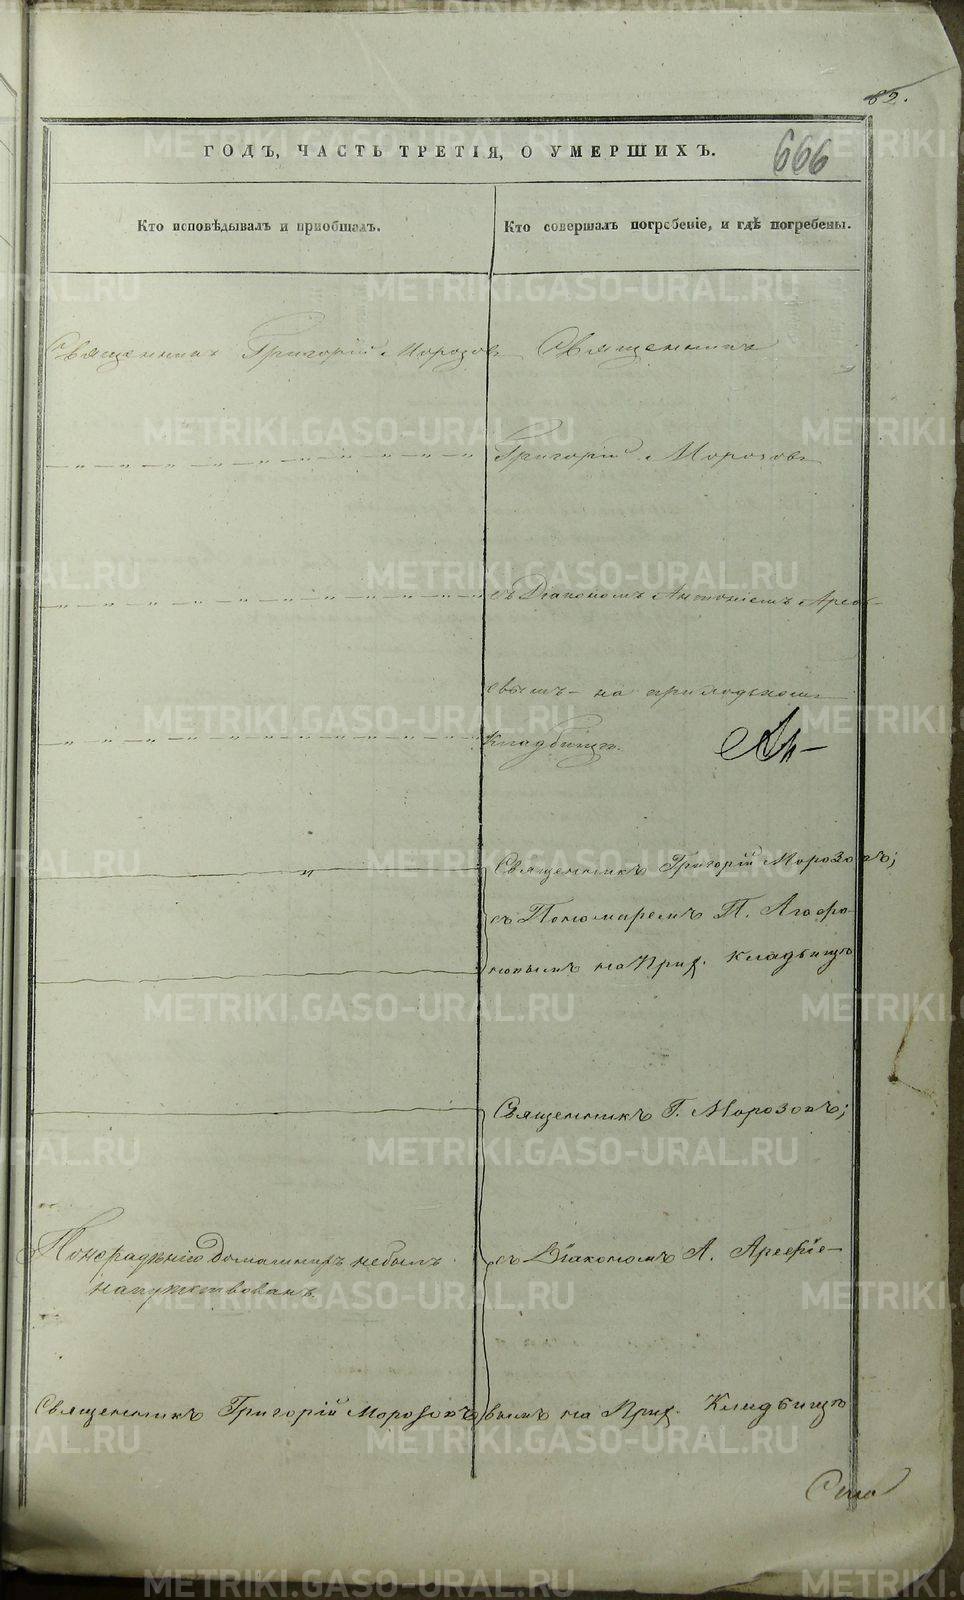 82.
ГОДЪ, ЧАСТЬ ТРЕТІЯ, О УМЕРШИХЪ.
666
Кто исповѣдывалъ и пріобщалъ.
Кто совершалъ погребеніе, и гдѣ погребены.
Священникъ Григорій Морозовъ
Священникъ
Григорій Морозовъ
съ Діакономъ Антоніемъ Арефі-
евымъ на приходскомъ
кладбищѣ.
Священникъ Григорій Морозовъ;
съ Пономаремъ П. Агафо-
новымъ на Прих. кладбищѣ
Священникъ Г. Морозовъ;
съ Діакономъ А. Арефіе-
вымъ на Прих. Кладбищѣ
По нерадѣнію домашнихъ небылъ
напутствованъ.
Священникъ Григорій Морозовъ
METRIKI.GASO-URAL.RU